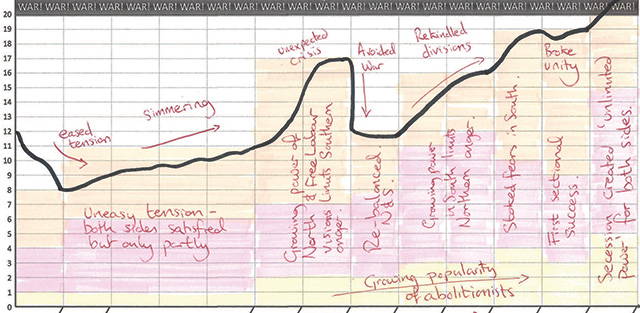 WAR! WAR! WAR! WAR! WAR! WAR! WAR! WAR! WAR! WAR! WAR! WAR! WAR! WAR! WAR! WAR! WAR! WAR! WAR! WAR! WAR! WAR! WAR! WAR! WAR! WAR!
20
19
18
17
16
15
14
13
12
11
10
9
8
7
6
5
4
3
2
1
0
eased
tension
simmering
unexpected
crisis
Avoided
War
Rekindled
divisions
Broke
unity
Uneasy tension -
both sides satisfied
but only partly
Growing power of
North & Free Labour
visions limits Southern
anger.
Re-balanced
N&S.
Growing power
in South limits
Northern anger.
Stoked fears in South.
First sectional
success.
Secession created 'unlimited
Power' for both sides.
Growing popularity
of abolitionists